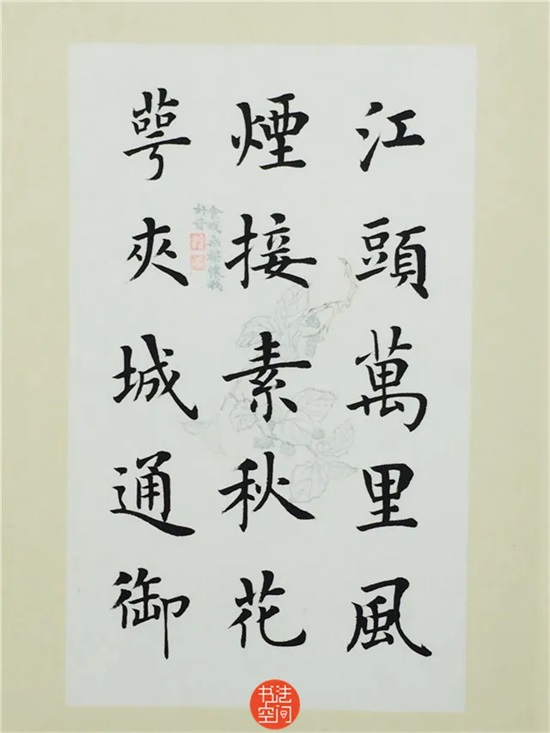 江頭萬里風
煙接素秋花
萼夾城通御
书法
空间